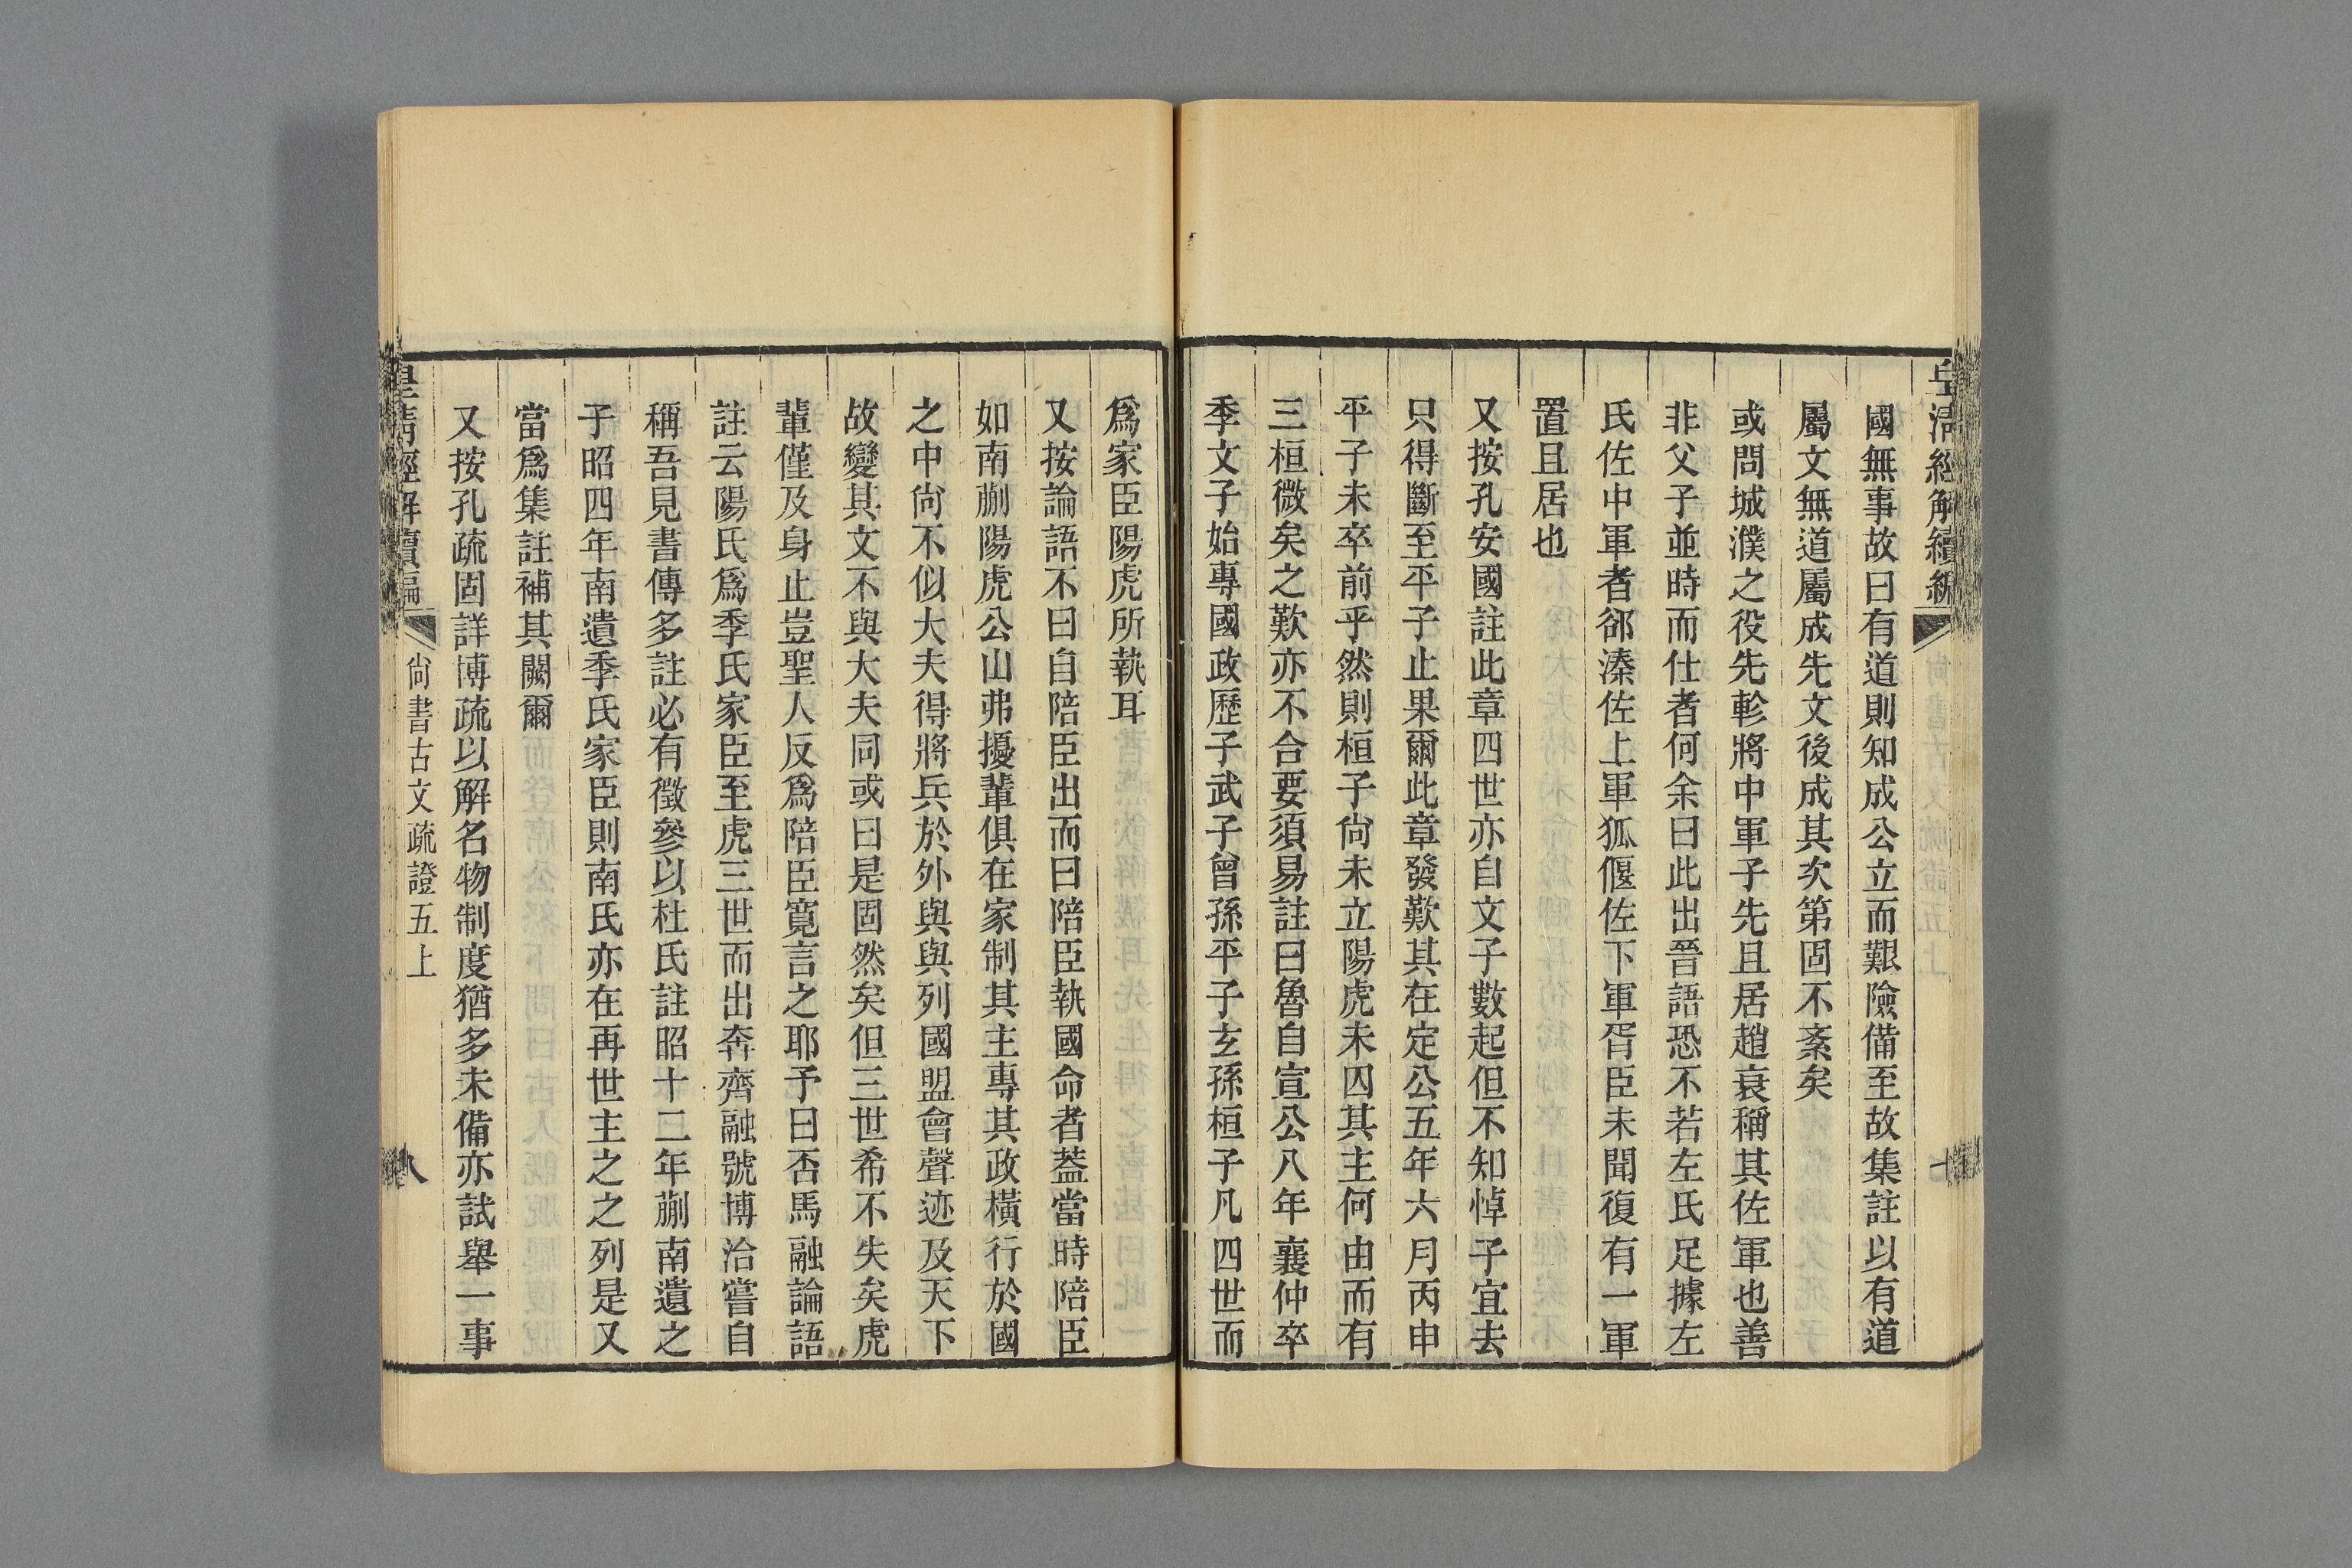 皇清經解續編
國無事故曰有道則知成公立而艱險備至故集註以有道
屬文無道屬成先文後成其次第固不紊矣
或問城濮之役先軫將中軍子先且居趙衰稱其佐軍也善
非父子並時而仕者何余曰此出晉語恐不若左氏足據左
氏佐中軍者郤溱佐上軍狐偃佐下軍胥臣未聞復有一軍
置且居也
又按孔安國註此章四世亦自文子數起但不知悼子宜去
只得斷至平子止果爾此章發歎其在定公五年六月丙申
平子未卒前乎然則桓子尙未立陽虎未囚其主何由而有
三桓微矣之歎亦不合要須易註曰魯自宣公八年襄仲卒
季文子始專國政歷子武子曾孫平子玄孫桓子凡四世而
爲家臣陽虎所執耳
又按論語不曰自陪臣出而曰陪臣執國命者葢當時陪臣
如南蒯陽虎公山弗擾輩俱在家制其主專其政橫行於國
之中尙不似大夫得將兵於外與與列國盟會聲迹及天下
故變其文不與大夫同或曰是固然矣但三世希不失矣虎
輩僅及身止豈聖人反爲陪臣寬言之耶予曰否馬融論語
註云陽氏爲季氏家臣至虎三世而出奔齊融號博洽嘗自
稱吾見書傳多註必有徵參以杜氏註昭十二年蒯南遺之
子昭四年南遺季氏家臣則南氏亦在再世主之之列是又
當爲集註補其闕爾
又按孔疏固詳博疏以解名物制度猶多未備亦試舉一事
皇清經解續編
尙書古文疏證五上
八